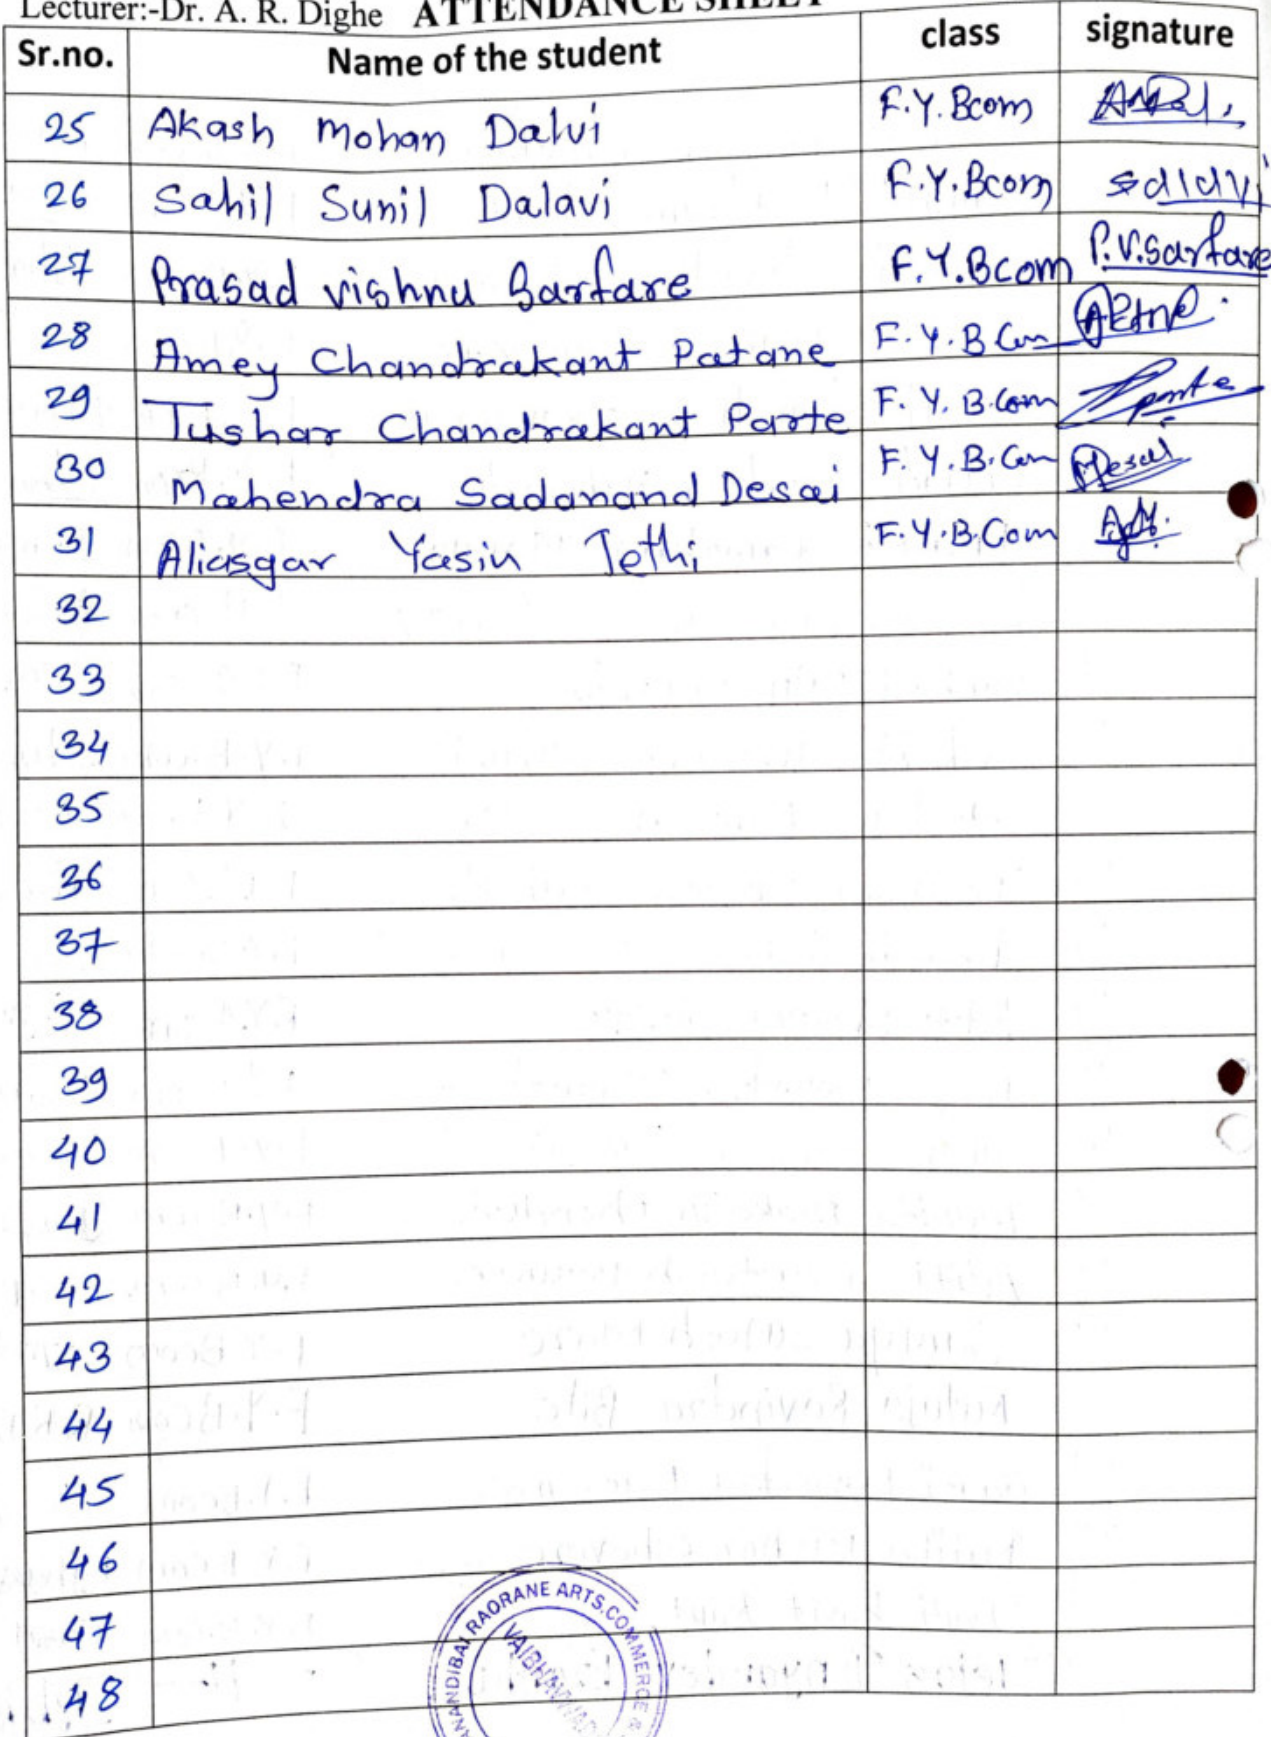 Lecturer:-Dr. A. R. Dighe ATTENDANCE SHEET
Sr.no. Name of the student class signature
25 Akash Mohan Dalvi F.Y.Bcom
26 Sahil Sunil Dalavi F.Y.Bcom sdlavi
27 Prasad vishnu Sarfare F.Y.Bcom P.V.Sarfare
28 Amey Chandrakant Patane F.Y.B.Com
29 Tushar Chandrakant Parte F.Y.B.Com Parte
30 Mahendra Sadanand Desai F.Y.B.Com Desai
31 Aliasgar Yasin Jethi F.Y.B.Com
32
33
34
35
36
37
38
39
40
41
42
43
44
45
46
47
48
ANANDIBAI RAORANE ARTS, COMMERCE &
VAIBHAVWADI